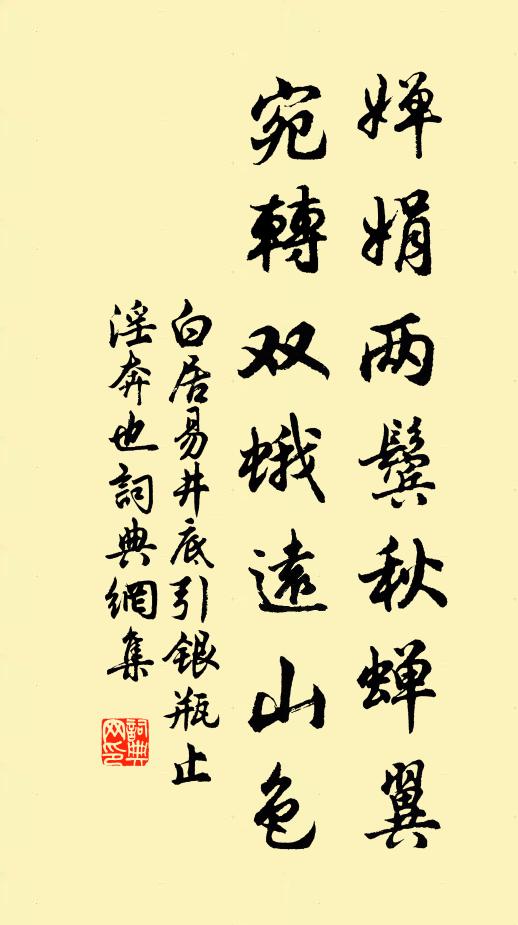 婵娟两鬓秋蝉翼
宛轉双蛾遠山色
白居易井底引银瓶止
淫奔也詞典網集
詞典网印